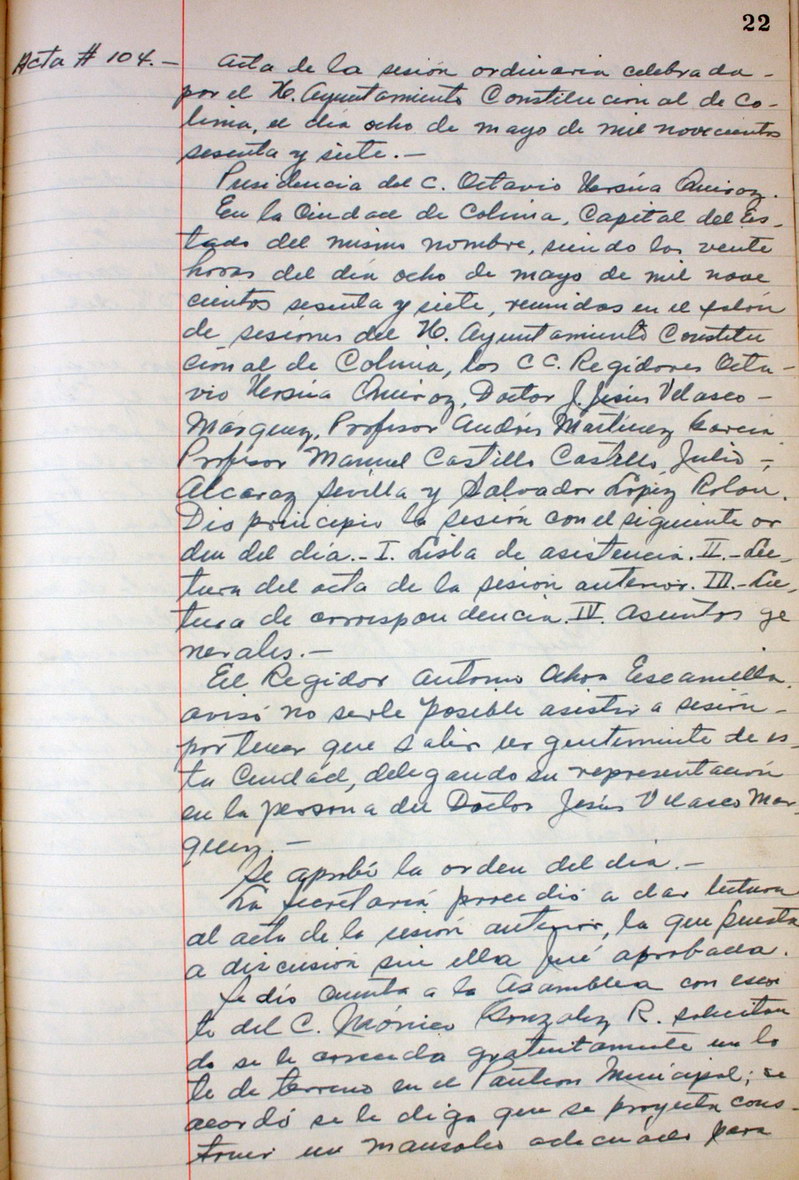 22
Acta # 104.- Acta de la sesión ordinaria celebrada -
por el H. Ayuntamiento Constitucional de Co-
lima, el día ocho de mayo de mil novecientos
sesenta y siete.-
Presidencia del C. Octavio Ursúa Quiroz.
En la Ciudad de Colima, Capital del Es-
tado del mismo nombre, siendo las veinte
horas del día ocho de mayo de mil nove
cientos sesenta y siete, reunidos en el salón
de sesiones del H. Ayuntamiento Constitu
cional de Colima, los CC. Regidores Octa-
vio Ursúa Quiroz, Doctor J. Jesús Velasco -
Márquez, Profesor Andrés Martínez García
Profesor Manuel Castillo Castillo, Julio -
Alcaraz Sevilla y Salvador López Rolon.
Dio principio la sesión con el siguiente or
den del día.- I. Lista de asistencia. II.- Lec-
tura del acta de la sesión anterior. III.- Lec-
tura de correspondencia. IV. Asuntos ge
nerales.-
El Regidor Antonio Escamilla
avisó no serle posible asistir a sesión -
por tener que salir urgentemente de es-
ta Ciudad, delegando su representación
en la persona del Doctor Jesús Velasco Mar-
quez.-
Se aprobó la orden del día.-
La Secretaría procedió a dar lectura
al acta de la sesión anterior, la que puesta
a discusión sin ella fué aprobada.
Se dió cuenta a la Asamblea con escri
to del C. Mónico Gonzalez R. solicitan
do se le conceda gratuitamente un lo
te de terreno en el Panteon Municipal; se
acordó se le diga que se proyecta cons-
truir un mausoleo adecuado para